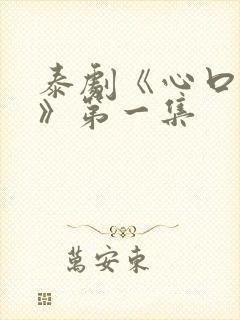 泰劇《心口
》第一集
萬安東